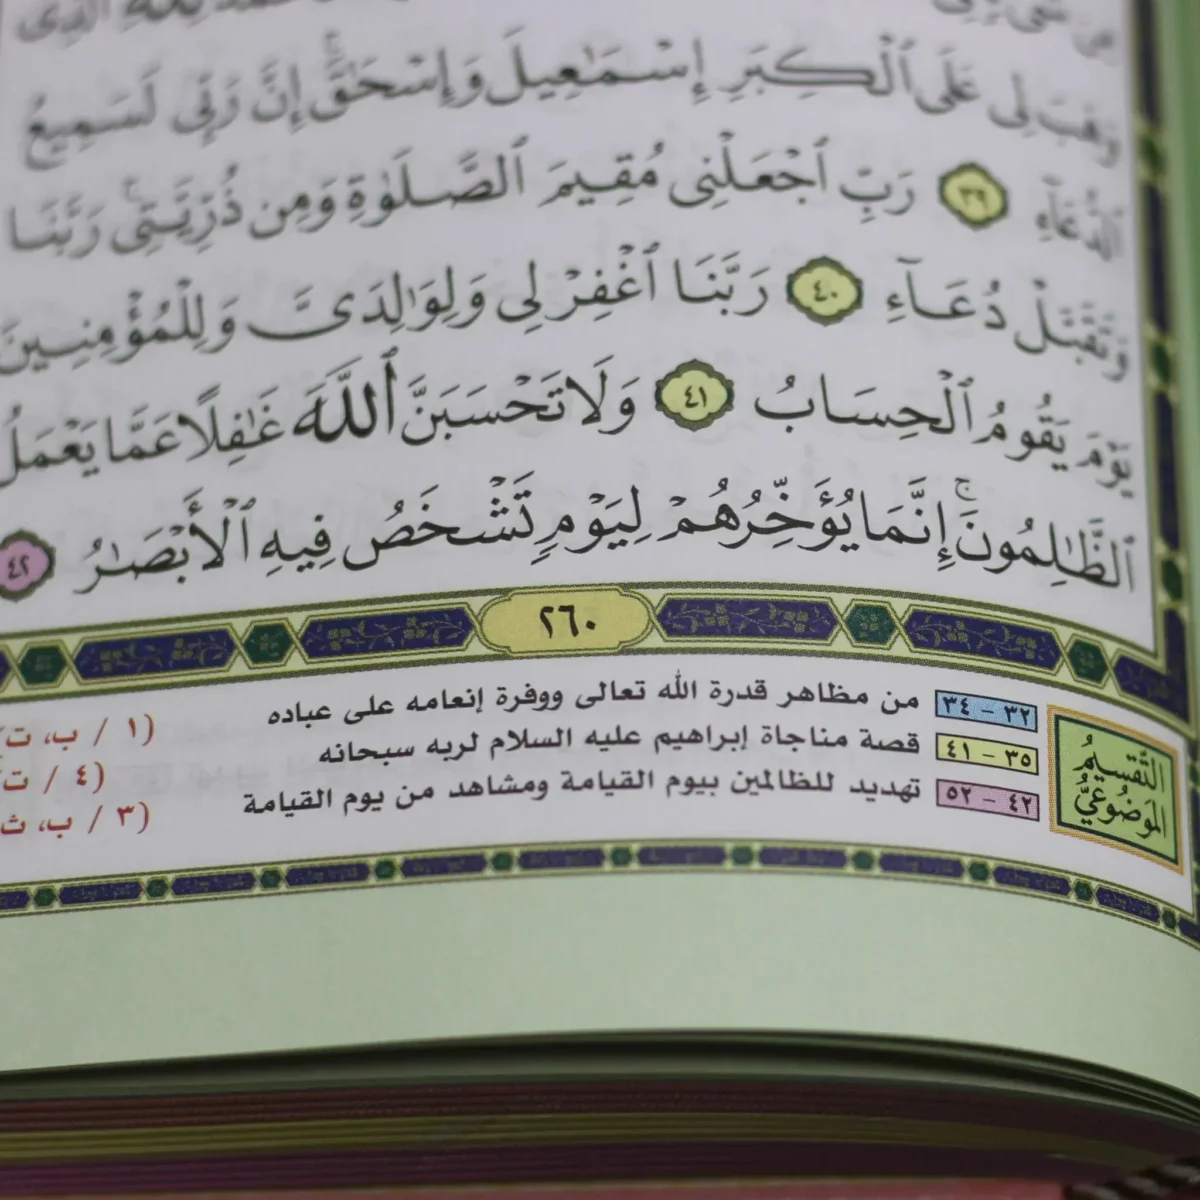 الَّذِي
وَهَبَ لِي عَلَى ٱلْكِبَرِ إِسْمَٰعِيلَ وَإِسْحَٰقَۚ إِنَّ رَبِّي لَسَمِيعُ
ٱلدُّعَآءِ ٣٩ رَبِّ ٱجْعَلْنِي مُقِيمَ ٱلصَّلَوٰةِ وَمِن ذُرِّيَّتِيۚ رَبَّنَا
وَتَقَبَّلْ دُعَآءِ ٤٠ رَبَّنَا ٱغْفِرْ لِي وَلِوَٰلِدَيَّ وَلِلْمُؤْمِنِينَ
يَوْمَ يَقُومُ ٱلْحِسَابُ ٤١ وَلَا تَحْسَبَنَّ ٱللَّهَ غَٰفِلًا عَمَّا يَعْمَلُ
ٱلظَّٰلِمُونَۚ إِنَّمَا يُؤَخِّرُهُمْ لِيَوْمٍ تَشْخَصُ فِيهِ ٱلْأَبْصَٰرُ ٤٢
٢٦٠
التَّقسِيمُ المَوضُوعِيُّ
٣٢ - ٣٤ من مظاهر قدرة الله تعالى ووفرة إنعامه على عباده (١ / ب، ت
٣٥ - ٤١ قصة مناجاة إبراهيم عليه السلام لربه سبحانه (٤ / ت)
٤٢ - ٥٢ تهديد للظالمين بيوم القيامة ومشاهد من يوم القيامة (٣ / ب، ث